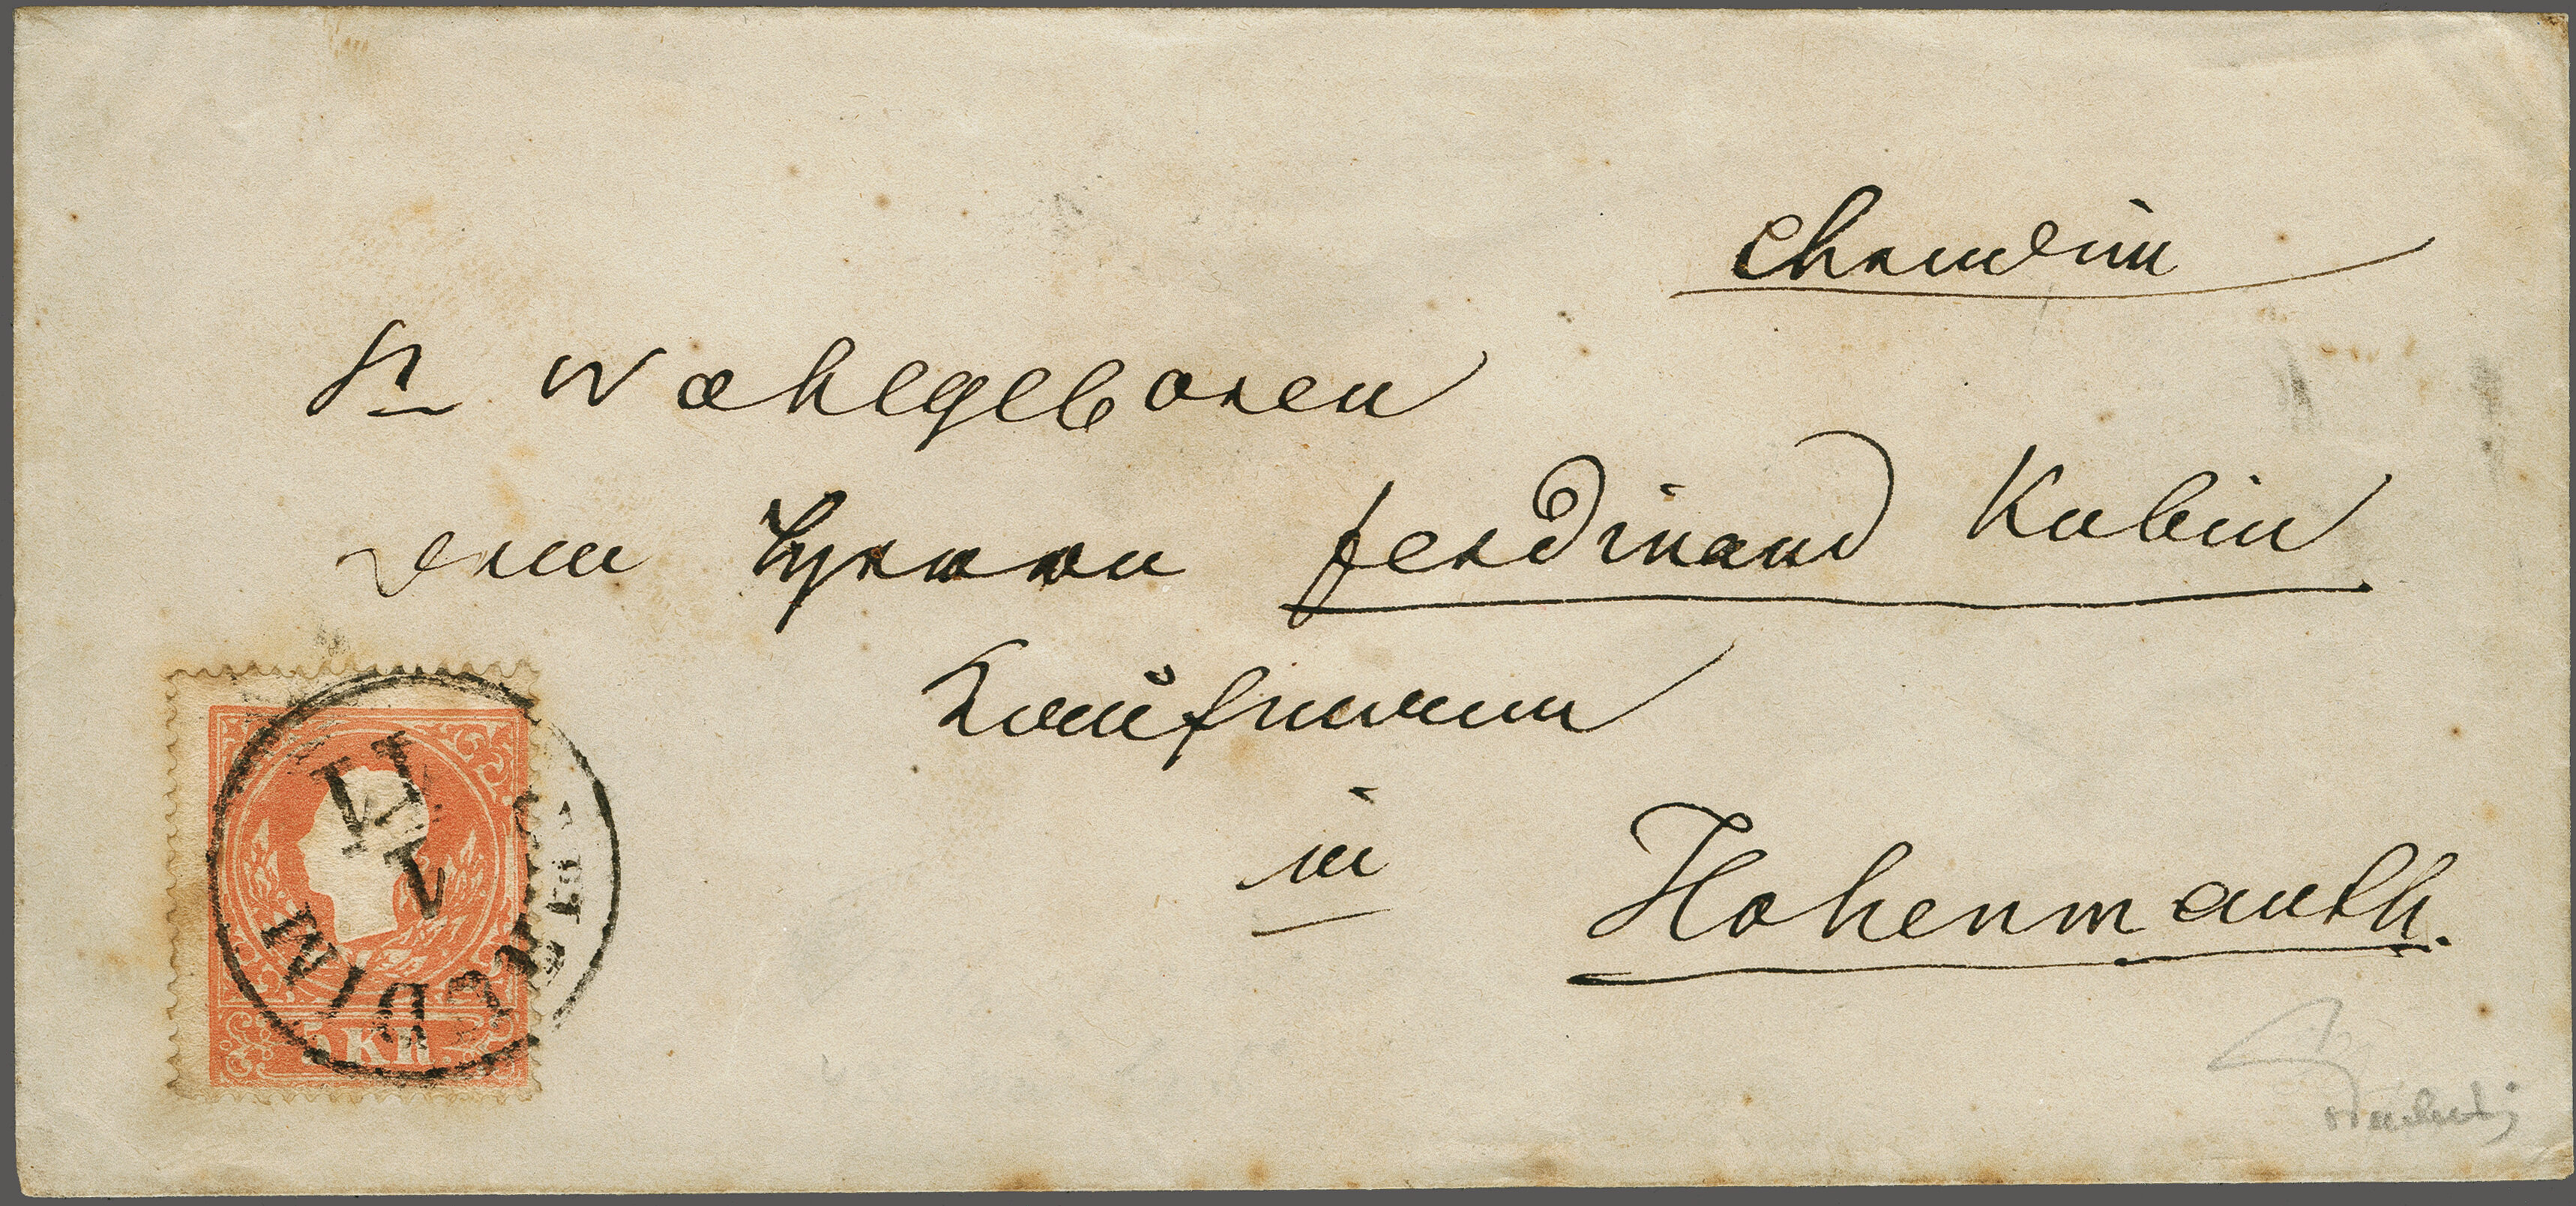 Chraudim
Sr Wohlgeboren
dem Herren Ferdinand Kubin
Kaufmann
in Hohenmauth.
5 KR.
CHRUDIM